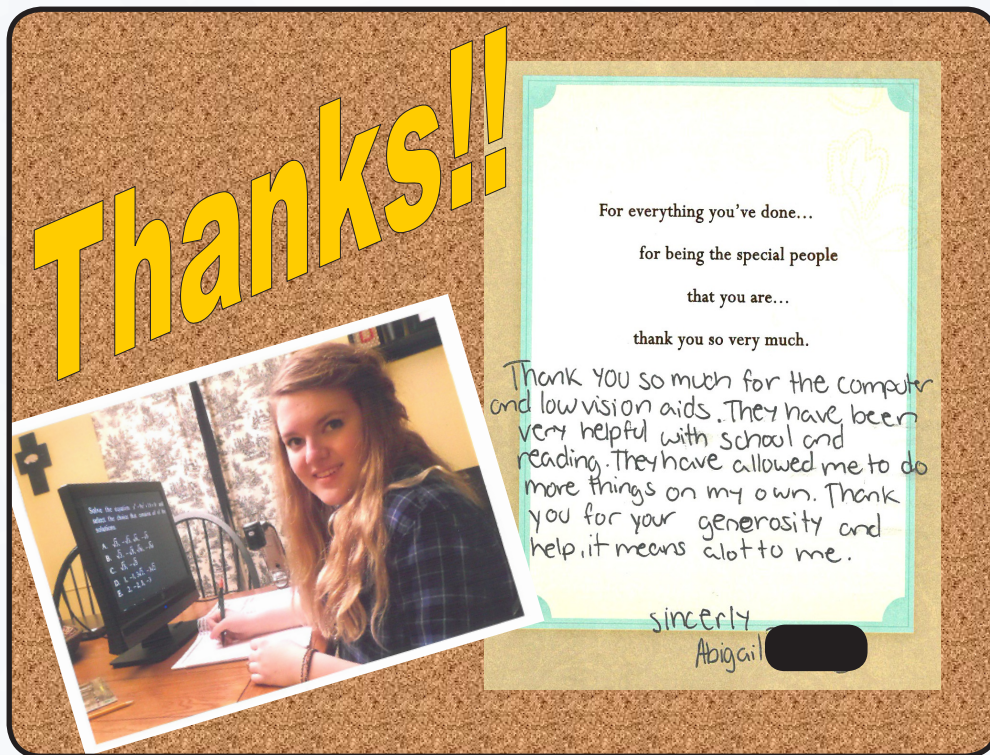 Thanks!!
For everything you've done...
for being the special people
that you are...
thank you so very much.
Thank you so much for the computer
and low vision aids. They have been
very helpful with school and
reading. They have allowed me to do
more things on my own. Thank
you for your generosity and
help, it means alot to me.
sincerly
Abigail
Solve the equation
and
select the choice that consists of all
solutions.
A.
B.
C.
D.
E.